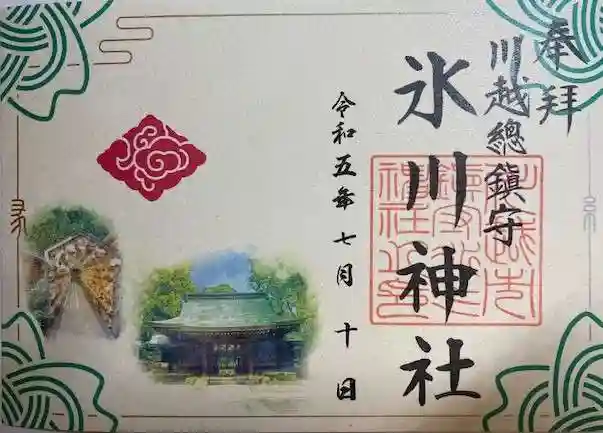 奉拝
川越總鎮守
氷川神社
令和五年七月十日